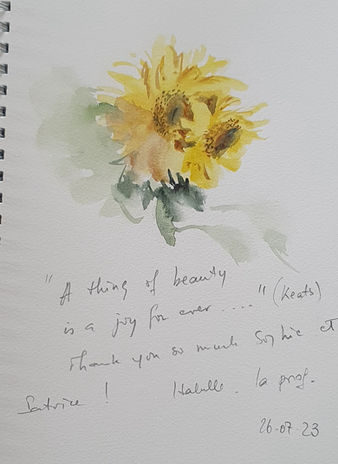 "A thing of beauty
is a joy for ever ...." (Keats)
Thank you so much Sophie et
! la prof.
26-07-23